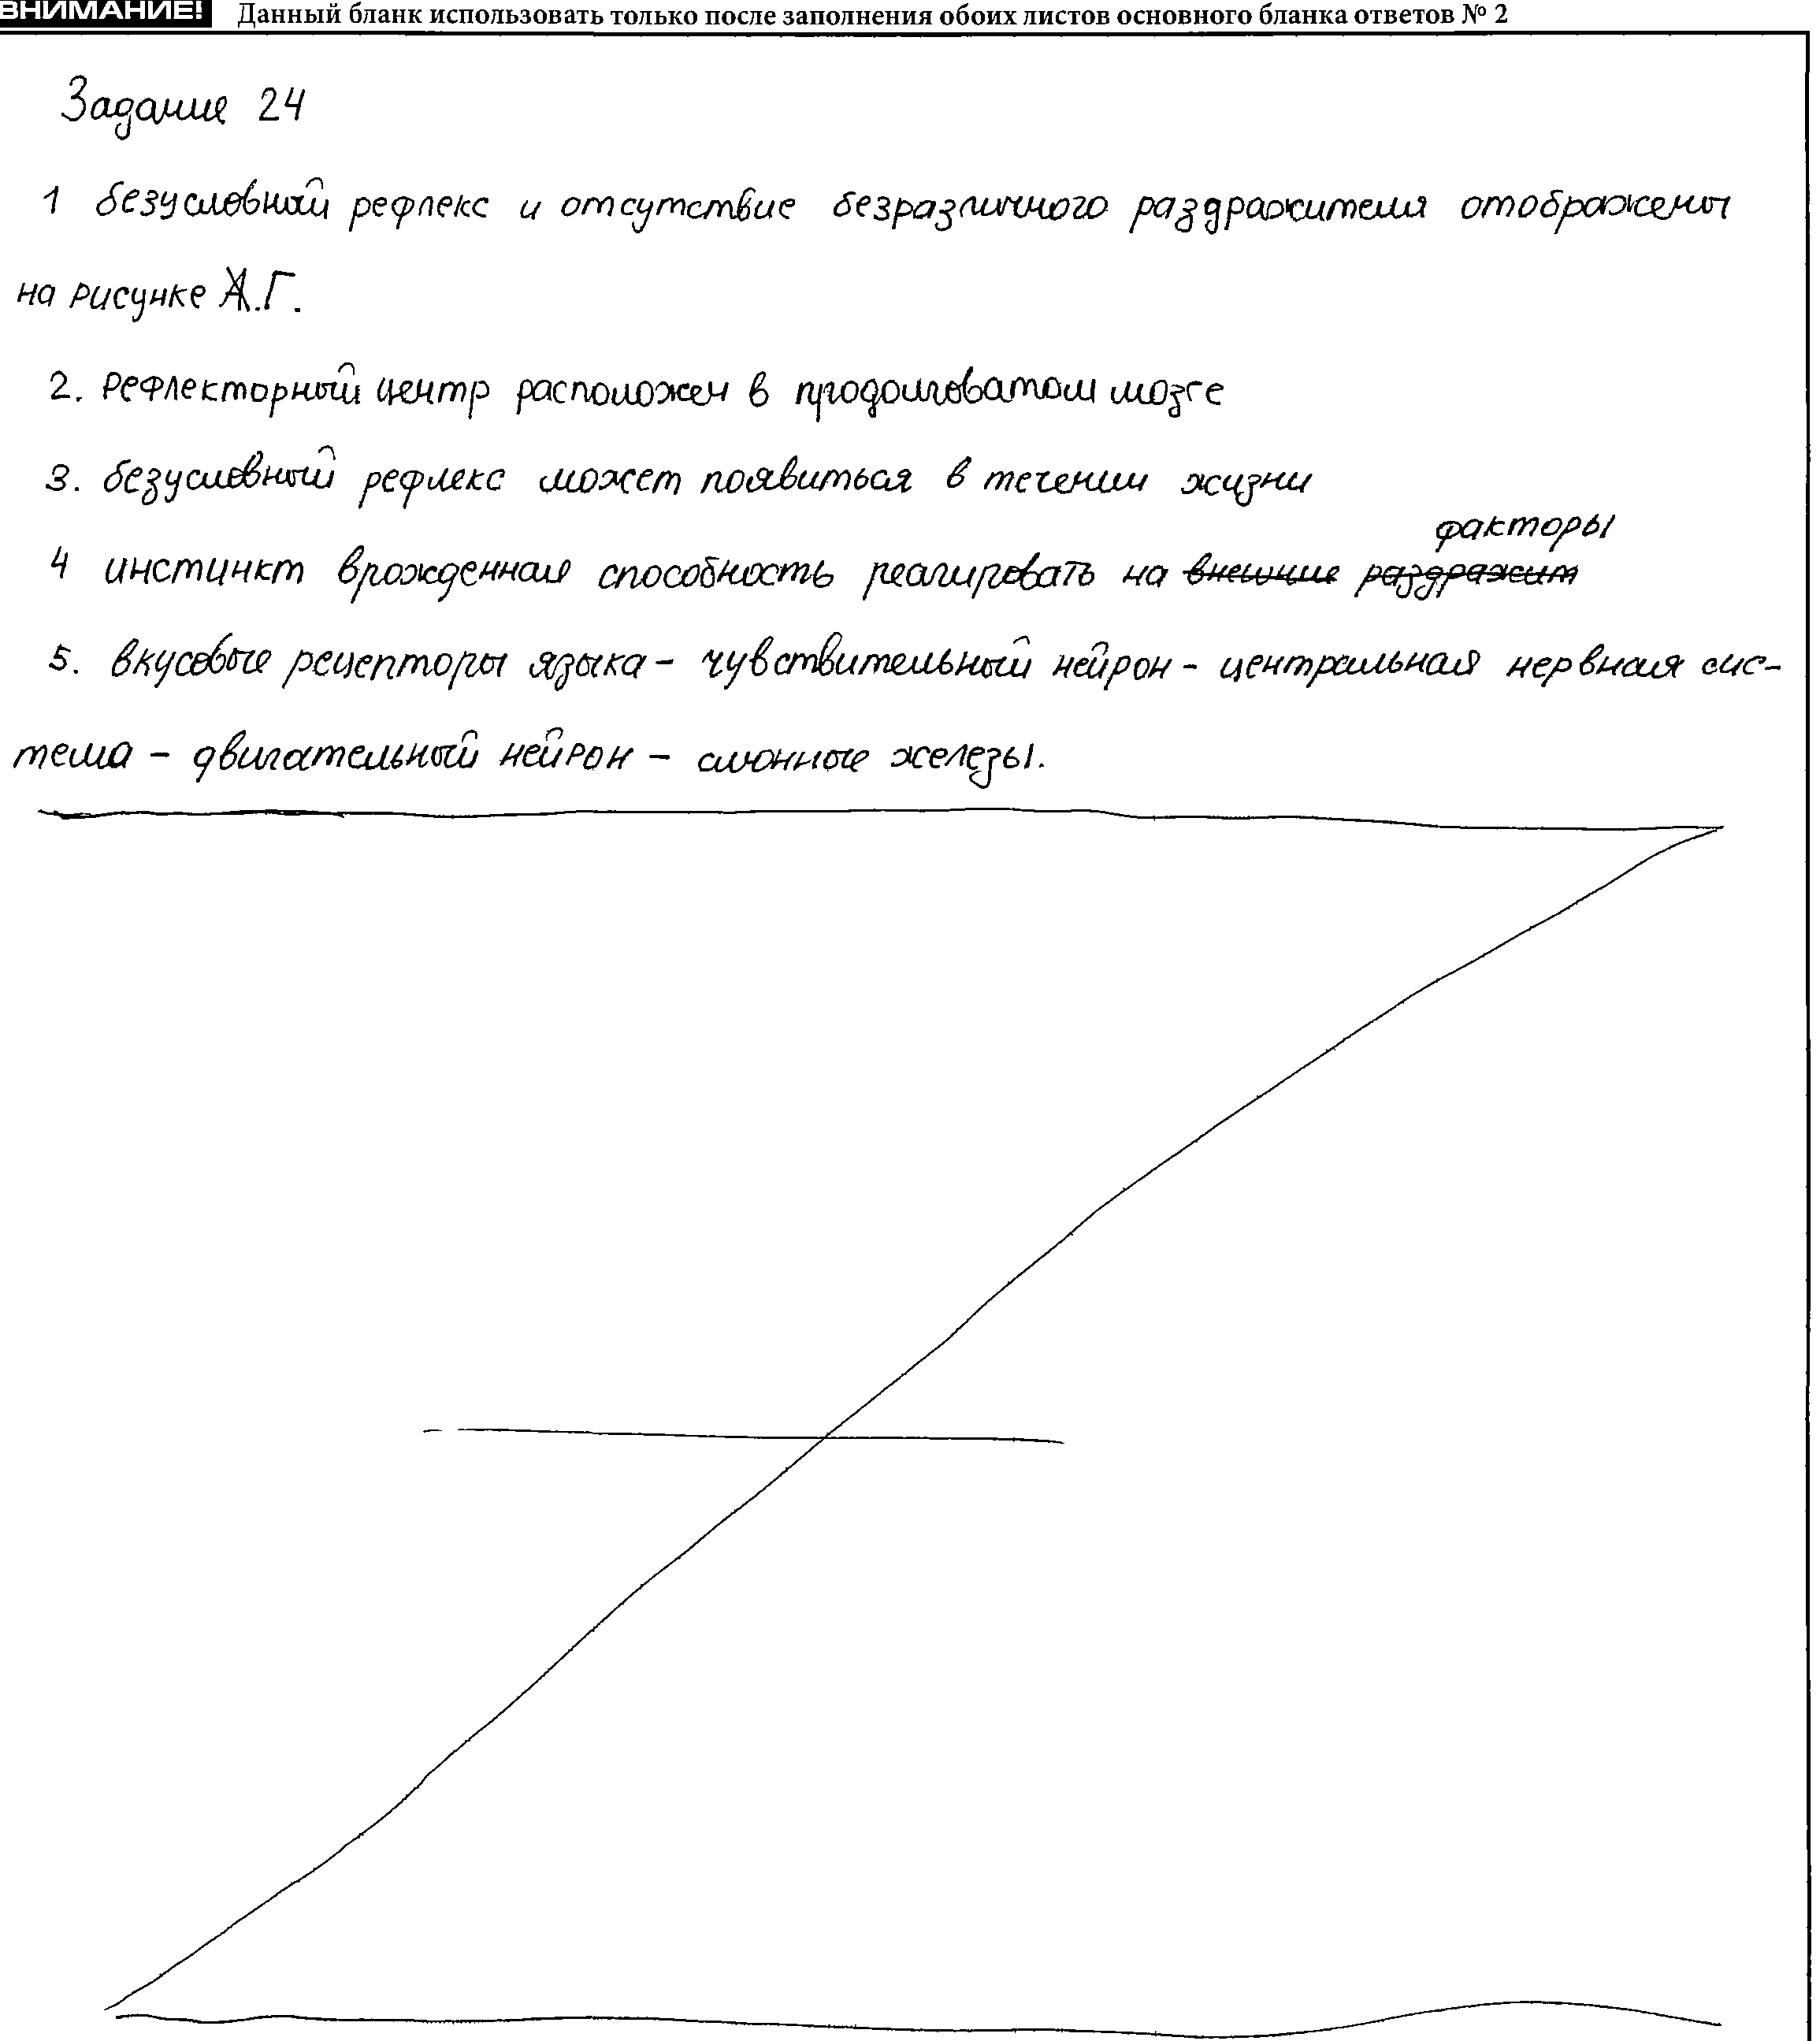 ВНИМАНИЕ! Данный бланк использовать только после заполнения обоих листов основного бланка ответов № 2
Задание 24
1 безусловный рефлекс и отсутствие безразличного раздражителя отображены
на рисунке А.Г.
2. Рефлекторный центр расположен в продолговатом мозге
3. безусловный рефлекс может появиться в течении жизни
факторы
4 инстинкт врожденная способность реагировать на внешние раздражит
5. вкусовые рецепторы языка - чувствительный нейрон - центральная нервная сис-
тема - двигательный нейрон - слюнные железы.